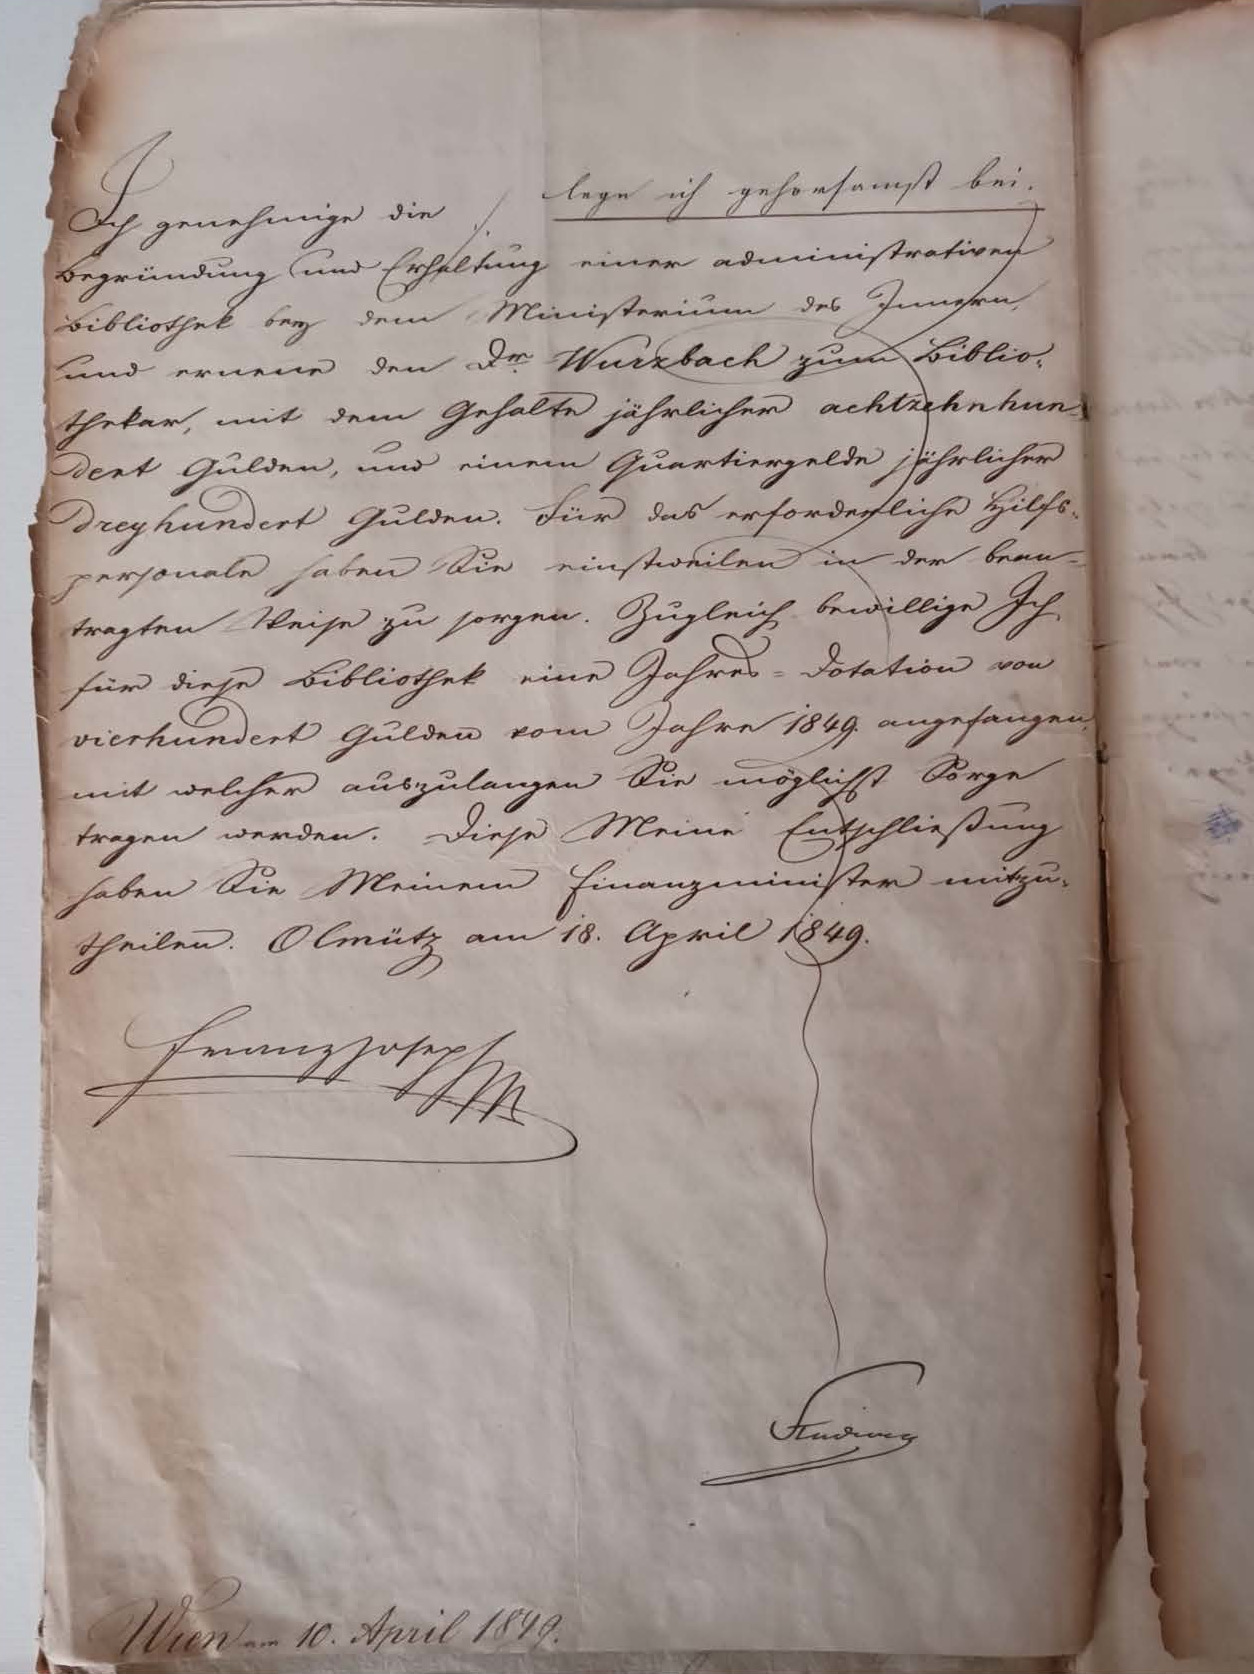 lege ich gehorsamst bei.
Ich genehmige die
Begründung und Erhaltung einer administrativen
Bibliothek bey dem Ministerium des Innern,
und ernene den Dr. Wurzbach zum Biblio-
thekar, mit dem Gehalte jährlicher achtzehnhun-
dert Gulden, und einem Quartiergelde jährlicher
dreyhundert Gulden. Für das erforderliche Hilfs-
personale haben Sie einstweilen in der bean-
tragten Weise zu sorgen. Zugleich bewillige Ich
für diese Bibliothek eine Jahres-Dotation von
vierhundert Gulden vom Jahre 1849 angefangen,
mit welcher auszulangen Sie möglichst Sorge
tragen werden. Diese Meine Entschließung
haben Sie Meinem Finanzminister mitzu-
theilen. Olmütz am 18. April 1849.
Franz Joseph
Stadion
Wien am 10. April 1849.